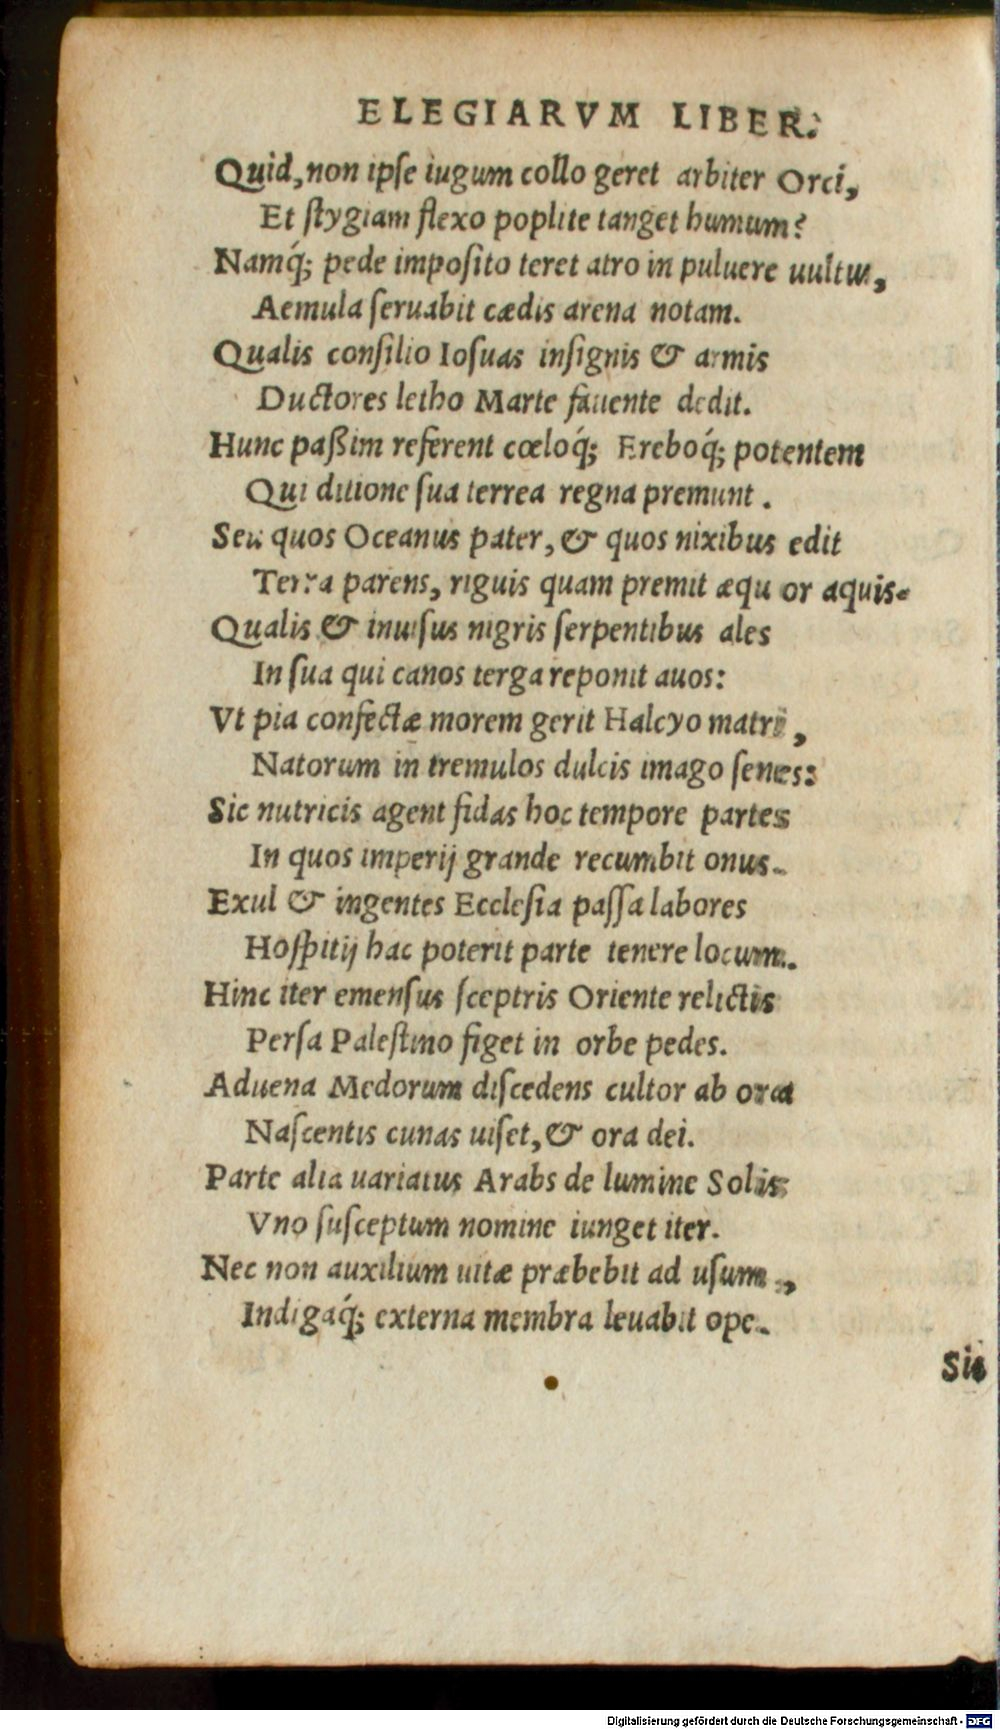 ELEGIARVM LIBER.
Quid, non ipſe iugum collo geret arbiter Orci,
Et ſtygiam flexo poplite tanget humum?
Namq́; pede impoſito teret atro in puluere uultus,
Aemula ſeruabit cædis arena notam.
Qualis conſilio Ioſuas inſignis & armis
Ductores letho Marte fauente dedit.
Hunc paßim referent cœloq́; Ereboq́; potentem
Qui ditione ſua terrea regna premunt.
Seu quos Oceanus pater, & quos nixibus edit
Terra parens, riguis quam premit æqu or aquis.
Qualis & inuiſus nigris ſerpentibus ales
In ſua qui canos terga reponit auos:
Vt pia confectæ morem gerit Halcyo matri,
Natorum in tremulos dulcis imago ſenes:
Sic nutricis agent fidas hoc tempore partes
In quos imperij grande recumbit onus.
Exul & ingentes Eccleſia paſſa labores
Hoſpitij hac poterit parte tenere locum.
Hinc iter emenſus ſceptris Oriente relictis
Perſa Paleſtino figet in orbe pedes.
Aduena Medorum diſcedens cultor ab ora
Naſcentis cunas uiſet, & ora dei.
Parte alia uariatus Arabs de lumine Solis
Vno ſuſceptum nomine iunget iter.
Nec non auxilium uitæ præbebit ad uſum,
Indigaq́; externa membra leuabit ope.
Sic
Digitalisierung gefördert durch die Deutsche Forschungsgemeinschaft - DFG